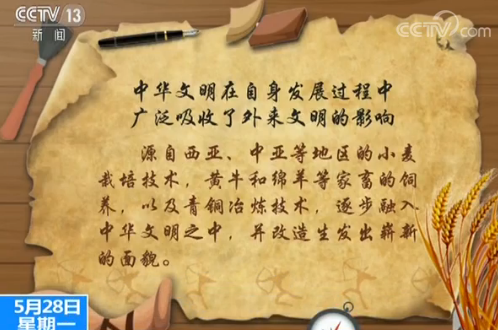 CCTV 13
新闻
CCTV.com
中华文明在自身发展过程中
广泛吸收了外来文明的影响
源自西亚、中亚等地区的小麦
栽培技术，黄牛和绵羊等家畜的饲
养，以及青铜冶炼技术，逐步融入
中华文明之中，并改造生发出崭新
的面貌。
5月28日
星期一